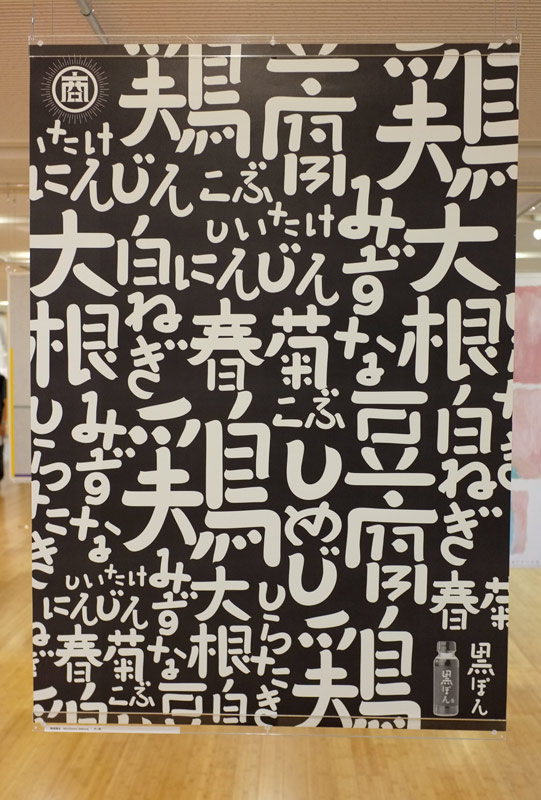 商
鶏
豆腐
鶏
しいたけ
にんじん
こぶ
しいたけ
にんじん
みずな
大根
白ねぎ
大根
春菊
こぶ
しらたき
みずな
鶏
しめじ
豆腐
白ねぎ
しらたき
春菊
しいたけ
にんじん
みずな
大根
しらたき
春菊
こぶ
白
豆
鶏
黒ぽん
黒ぽん